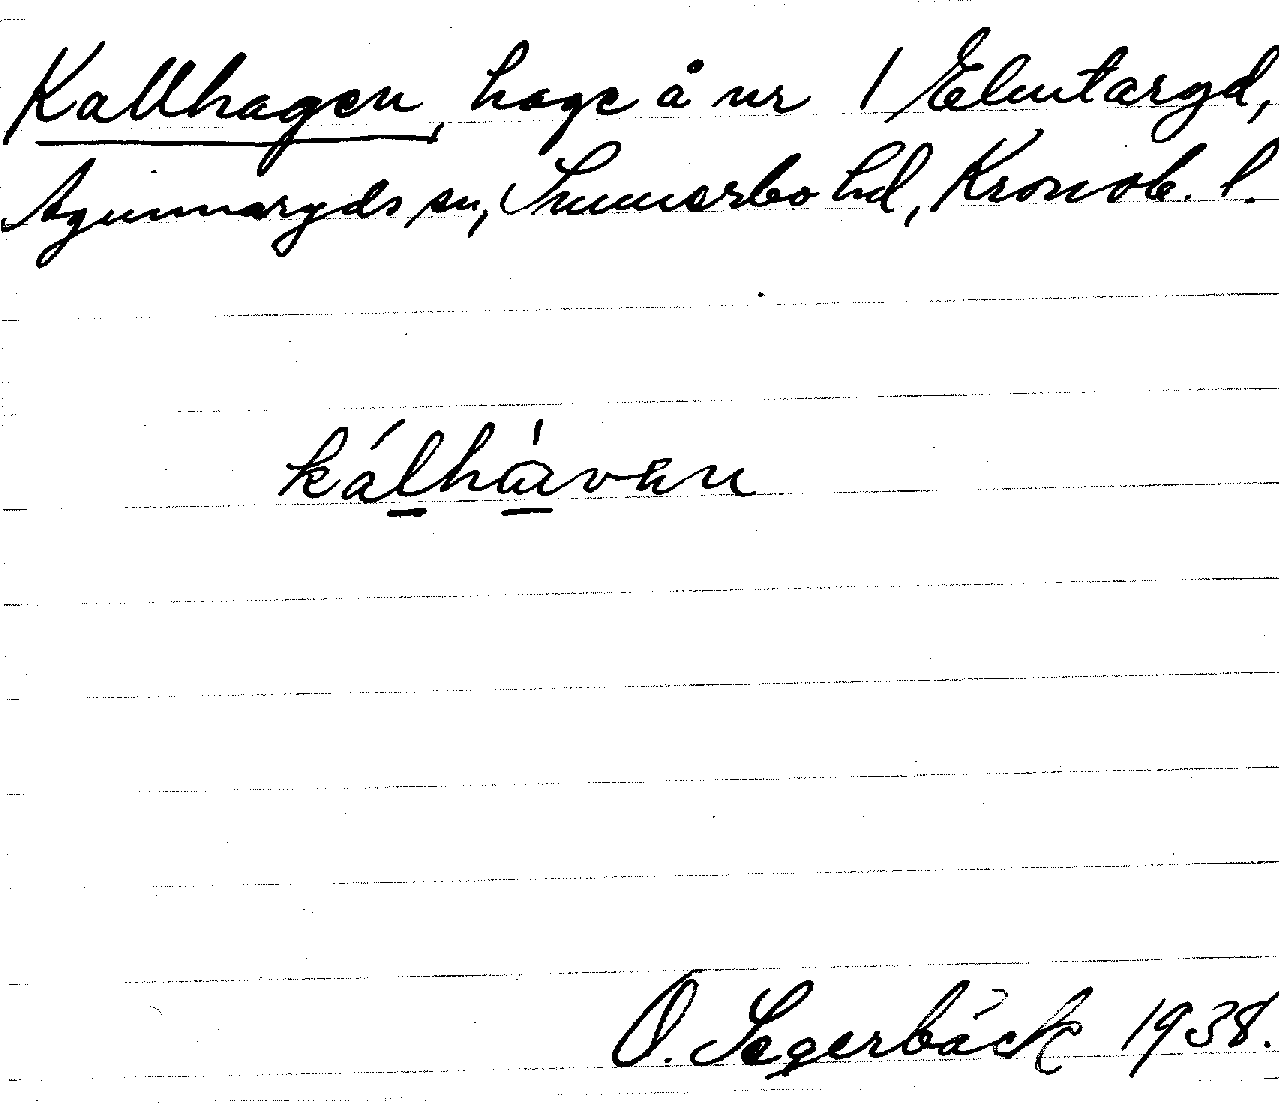 Kallhagen, hage å nr 1 Elmtaryd,
Agunnaryds sn, Sunnerbo hd, Kronob. l.
kálhàven
O. Segerbäck 1938.